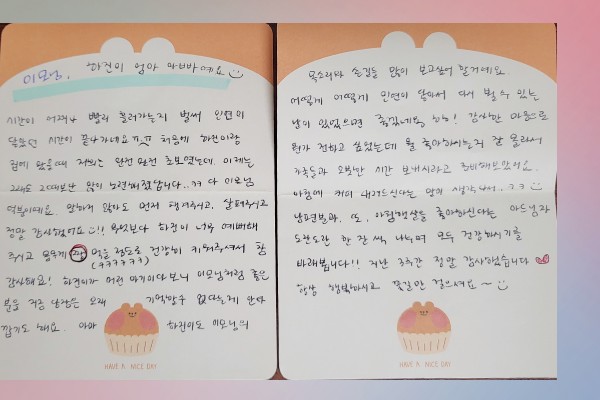 이모님, 하건이 엄마 아빠예요
시간이 어찌나 빨리 흘러가는지 벌써 인연이
닿았던 시간이 끝나가네요 ㅠㅠ 처음에 하건이랑
집에 왔을때 저희는 완전 완전 초보였는데 이제는
그래도 그때보단 많이 노련해졌답니다.. ㅋㅋ 다 이모님
덕분이에요. 말하지 않아도 먼저 챙겨주시고, 살펴주시고
정말 감사했어요 !! 무엇보다 하건이 너무 예뻐해
주시고 몸무게 꽉 찰 정도로 건강히 키워주셔서 참
(ㅋㅋㅋㅋㅋ)
감사해요! 하건이가 어린 아기이다 보니 이모님처럼 좋은
분을 직접 오래 기억할수 없다는게 안타
깝기도 해요. 아마 하건이도 이모님의
HAVE A NICE DAY
목소리와 손길을 많이 보고싶어 할거예요
어떻게 어떻게 인연이 닿아서 다시 뵐 수 있는
날이 있었으면 좋겠네요 ㅎㅎ! 감사한 마음으로
뭔가 전하고 싶었는데 뭘 좋아하시는지 잘 몰라서
가족들과 오붓한 시간 보내시라고 준비해보았어요.
아침에 커피 내려드신다는 말이 생각나서.. ㅋㅋ
남편분과, 또, 아침햇살을 좋아하신다는 아드님과
도란도란 한 잔 씩 나누며 모두 건강하시기를
바래봅니다!! 지난 3주간 정말 감사했습니다
항상 행복하시고 꽃길만 걸으셔요~
HAVE A NICE DAY